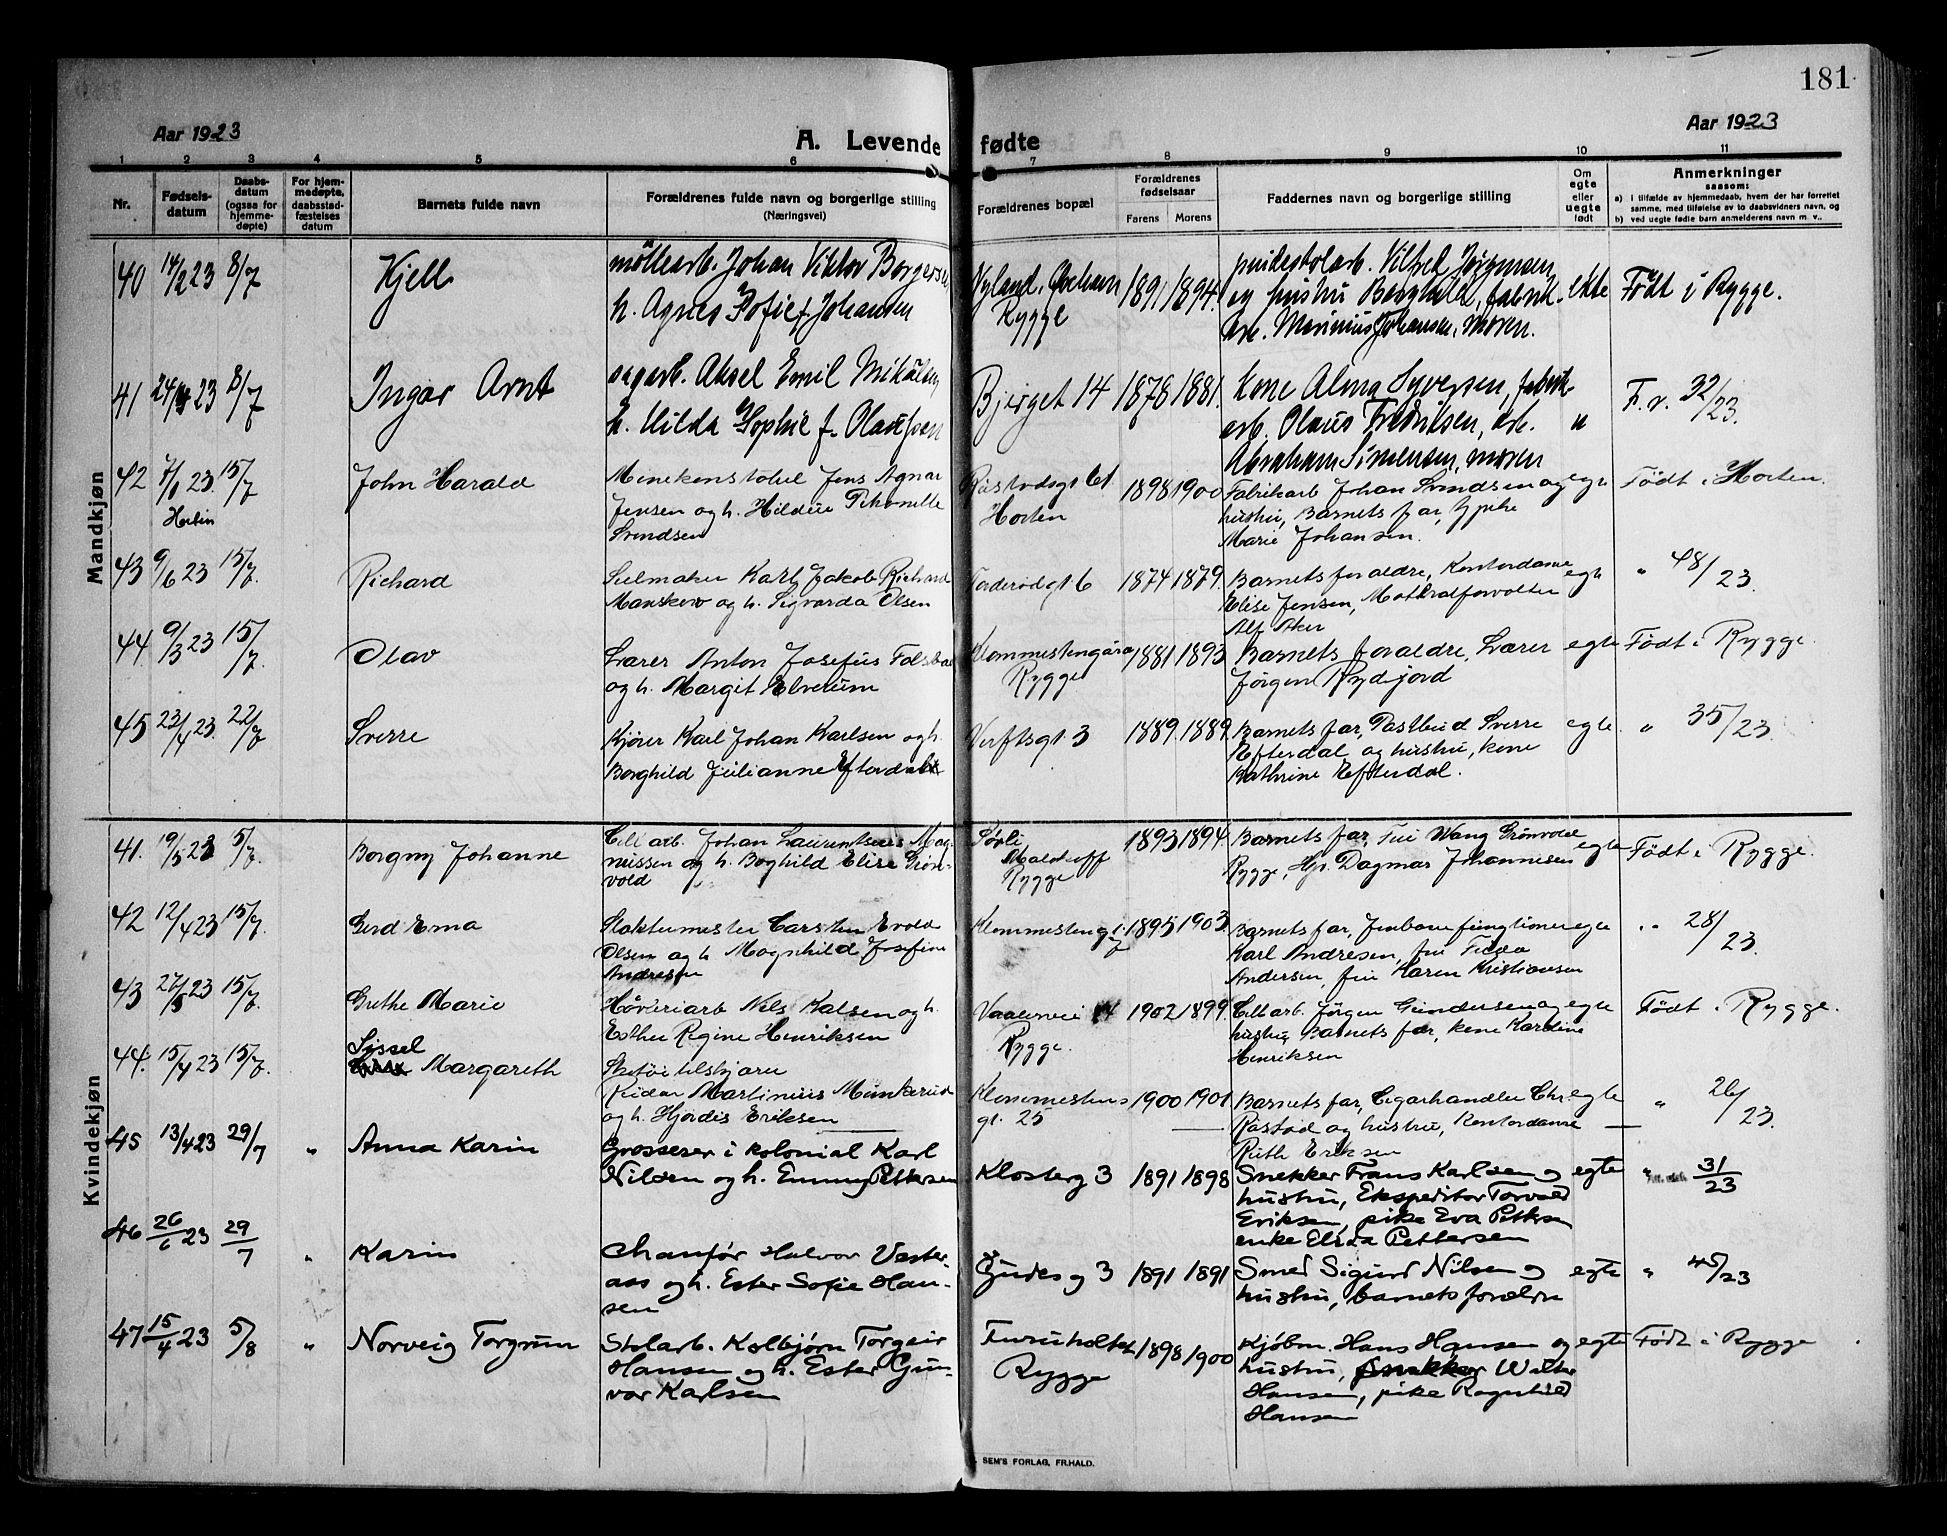 181
Aar 1923
A. Levende fødte
Aar 1923
1 2 3 4 5 6 7 8 9 10 11
Nr.
Fødsels-
datum
Daabs-
datum
(ogsaa for
hjemme-
døpte)
For hjem-
medøpte,
daabsstad-
fæstelses
datum
Barnets fulde navn
Forældrenes fulde navn og borgerlige stilling
(Næringsvei)
Forældrenes bopæl
Forældrenes
fødselsaar
Farens Morens
Faddernes navn og borgerlige stilling
Om
egte
eller
uegte
født
Anmerkninger
saasom:
a) i tilfælde av hjemmedaab, hvem der har forrettet
samme, med tilføielse av to daabsvidners navn, og
b) ved uegte fødte barn anmelderens navn m. v..
Mandkjøn
40 14/2 23 8/7 Kjell
møllearb. Johan Viktor Borgersen
h. Agnes Sofie f. Johansen
Nyland,
Rygge
1891 1894.
Vilfred Jørgensen
og hustru Borghild, fabrik-
arb. Marinius Johansen, moren.
ekte
Født i Rygge.
41 24/4 23 8/7 Ingar Arnt
sagarb. Aksel Emil Mikalsen
h. Hilda Sophie f. Olaussen
Bjerget 14
1878 1881.
Kone Alma Syversen, fabrik-
arb. Olaus Fredriksen, arb.
Abraham Simensen, moren
"
F. r. 32/23.
42 7/1 23. 15/7 John Harald
Horten
Jens Agnar
Jensen og h. Hildur
Svendsen
Horten
1898 1900
Fabrikarb Johan Svendsen og
hustru, Barnets far,
Marie Johansen.
egte
Født i Horten.
43 9/6 23 15/7. Richard
Seilmaker Karl Jakob Richard
og h. Sigvarda Olsen
6
1874 1879.
Barnets foraldre, Kontordame
Elise Jensen,
Alf Aker
egte
" 48/23.
44 9/3 23 15/7. Olav
Lærer Anton Josefus
og h. Margit Elverum
Rygge
1881 1893
Barnets foraldre, Lærer
Jørgen Rydjord
egte
Født i Rygge
45 23/4 23. 22/7 Sverre
Kjører Karl Johan Karlsen og h.
Borghild Julianne Efterdal
Verftsgt. 3
1889. 1889.
Barnets far, Sverre
Efterdal og hustru, kone
Kathrine Efterdal.
egte.
" 35/23.
Kvindekjøn
41. 19/3 23 5/7. Borgny Johanne
Cell arb. Johan Laurentsius Mag-
nussen og h. Borghild Elise Grøn-
vold
Rygge
1893 1894
Barnets far, Frü Wang Grønvold
Rygge, Hr. Dagmar Johannesen
egte
Født i Rygge.
42 12/4 23 15/7. Gerd Erna
Slaktermester Carsten Evald
Olsen og h Magnhilde Josefine
Andresen
1895 1903.
Barnets far,
Karl Andresen, frü
Andersen, frü Karen Kristiansen
egte
" 28/23.
43 27/5 23 15/7. Grethe Marie
Høveriarb Nils Kalsen og h.
Esther Regine Henriksen
14
Rygge.
1902 1899
Cell arb. Jørgen Gundersen og
hustru, Barnets far, kone Karoline
Henriksen
egte
Født i Rygge.
44. 15/4 23 15/7. Sissel
Margareth
Reidar Martinius Munkerud
og h. Hjørdis Eriksen
gt. 25
1900 1901
Barnets far, Cigarhandler Chr.
Rastad og hustru, Kontordame
Ruth Eriksen
egte
" 26/23.
45 13/4 23 29/7 " Anna Karin
Grosserer i kolonial Karl
Nilsen og h. Emmy Pettersen
Klosterg 3
1891 1898
Snekker Frans Karlsen og
hustru, Ekspeditør Torvald
Eriksen, pike Eva Pettersen
enke Elida Pettersen
egte
" 31/23
46 26/6 23 29/7 " Karin
Chaufør Halvor Vester-
aas og h. Ester Sofie Han-
sen
Gudes g 3
1891 1891
Smed Sigurd Nilsen og
hustru, barnets foreldre
egte
" 45/23
47 15/4 23 5/8 " Norveig Torgrun
Stolarb. Kolbjørn Torgeir
Hansen og h. Ester Gun-
vor Karlsen
Rygge
1898 1900
Kjøbm. Hans Hansen og
hustru, snekker Walter
Hansen, pike Ragnhild
Hansen
egte
Født i Rygge
SEM'S FORLAG, FR.HALD.